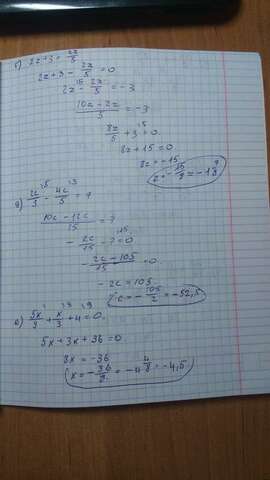 б) 2z + 3 = 2z/5
2z + 3 - 2z/5 = 0
2z - 2z/5 = -3
10z - 2z/5 = -3
8z/5 + 3 = 0
8z + 15 = 0
8z = -15
z = -15/8 = -1 7/8
2c/3 - 4c/5 = 7
10c - 12c/15 = 7
- 2c/15 - 7 = 0
- 2c - 105/15 = 0
-2c = 105
c = -105/2 = -52,5
е) 5x/9 + x/3 + 4 = 0
5x + 3x + 36 = 0
8x = -36
x = -36/8 = -4 4/8 = -4,5